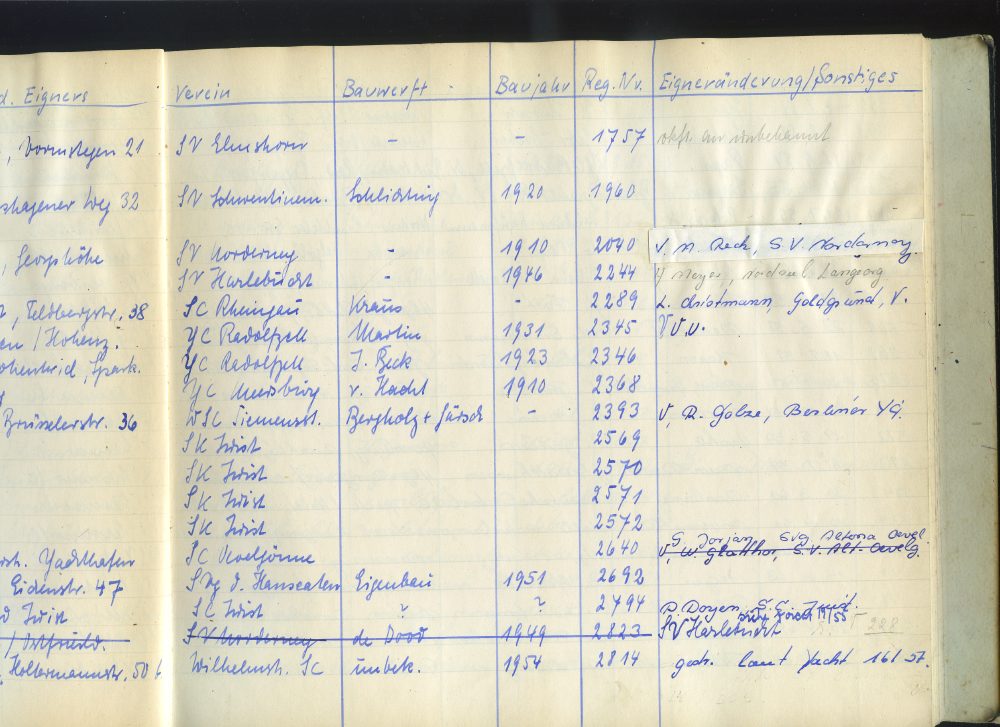 d. Eigners Verein Bauwerft Baujahr Reg. Nr. Eigneränderung/Sonstiges
, Vormstegen 21 SV Elmshorn - - 1757 an unbekannt
shagener Weg 32 SV Schwentinem. Schlichting 1920 1960
, Georgshöhe SV Norderney - 1910 2040 V. A. Reck, S.V. Nordernay.
SV Harlebucht - 1946 2244 Meyer, Langeoog
, Feldbergstr. 38 SC Rheingau Kraus - 2289 L. christmann, Goldgrund, V.
en / Hohenz. YC Radolfzell Martin 1931 2345 V.V.U.
YC Radolfzell J. Beck 1923 2346
YC Meersburg v. Hacht 1910 2368
Brüsselerstr. 36 WSC Siemensst. Bergholz + Gürsch - 2393 V, R. Golze, Berliner YG.
SK Juist 2569
SK Juist 2570
SK Juist 2571
SK Juist 2572
G. Dorjan, Svg Altona Oevel.
rst. Yachthafen SC 2640 V, W. Glatthor, S.V. Alt. Oevelg.
Eiderstr. 47 SVg d. Hanseaten Eigenbau 1951 2692
d Juist SC Juist ? ? 2794 D Doyen, S.C. Juist.
11/55
/ Ostfriesld. SV Norderney de Dood 1949 2823 SV Harlebucht 228
, Holtermannstr. 50 Wilhelmsh. SC unbek. 1954 2814 gestr. laut Yacht 16/57.